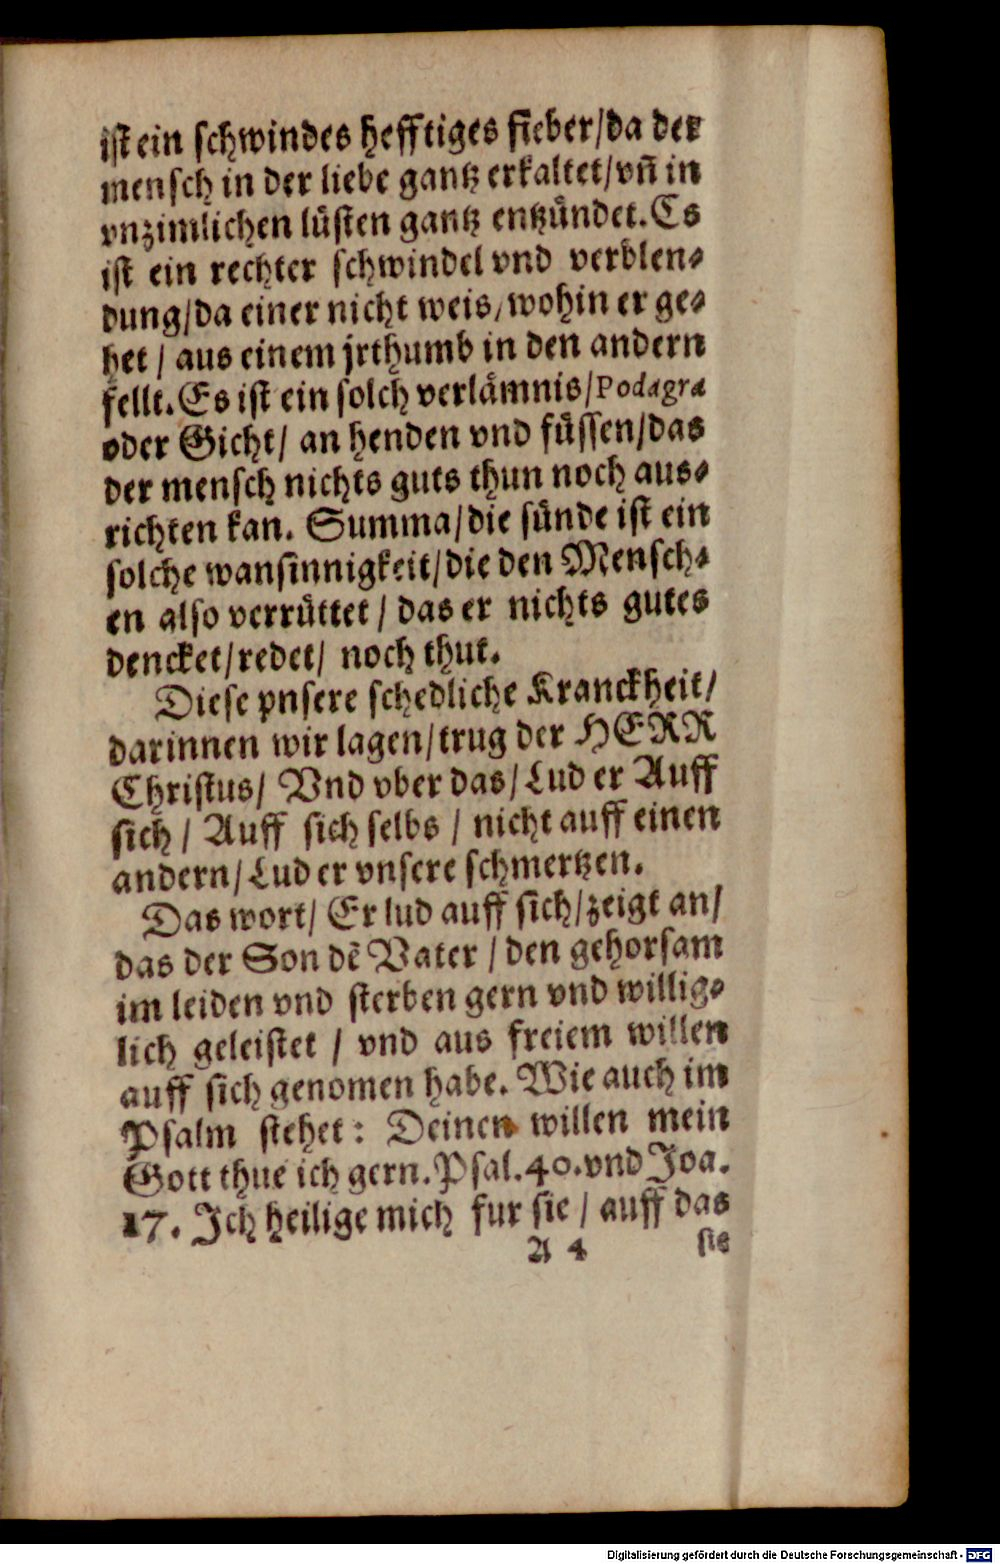 ist ein schwindes hefftiges fieber/da der
mensch in der liebe gantz erkaltet/vñ in
vnzimlichen lüsten gantz entzündet. Es
ist ein rechter schwindel vnd verblen-
dung/da einer nicht weis/wohin er ge-
het / aus einem jrthumb in den andern
fellt. Es ist ein solch verlämnis/Podagra
oder Gicht/ an henden vnd füssen/das
der mensch nichts guts thun noch aus-
richten kan. Summa/die sünde ist ein
solche wansinnigkeit/die den Mensch-
en also verrüttet / das er nichts gutes
dencket/redet/ noch thut.
Diese vnsere schedliche Kranckheit/
darinnen wir lagen/trug der HERR
Christus/ Vnd vber das/Lud er Auff
sich / Auff sich selbs / nicht auff einen
andern/Lud er vnsere schmertzen.
Das wort/ Er lud auff sich/zeigt an/
das der Son dẽ Vater / den gehorsam
im leiden vnd sterben gern vnd willig-
lich geleistet / vnd aus freiem willen
auff sich genomen habe. Wie auch im
Psalm stehet: Deinen willen mein
Gott thue ich gern. Psal. 40. vnd Joa.
17. Ich heilige mich fur sie / auff das
A 4 sie
Digitalisierung gefördert durch die Deutsche Forschungsgemeinschaft - DFG